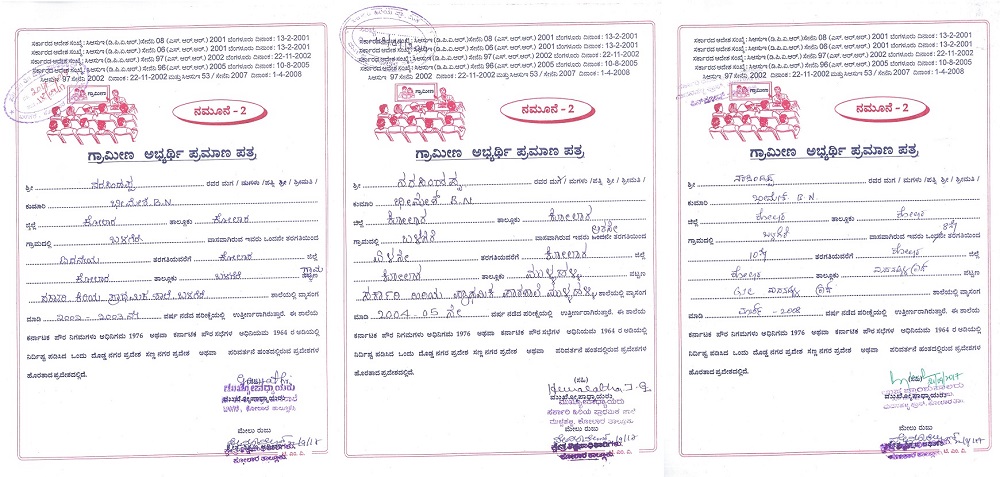 ಸರ್ಕಾರದ ಆದೇಶ ಸಂಖ್ಯೆ : ಸಿಆಸುಇ (ಡಿ.ಪಿ.ಎ.ಆರ್.) ಸೇನೆನಿ 08 (ಎಸ್.ಆರ್.ಆರ್.) 2001 ಬೆಂಗಳೂರು ದಿನಾಂಕ : 13-2-2001
ಸರ್ಕಾರದ ಆದೇಶ ಸಂಖ್ಯೆ : ಸಿಆಸುಇ (ಡಿ.ಪಿ.ಎ.ಆರ್.) ಸೇನೆನಿ 06 (ಎಸ್.ಆರ್.ಆರ್.) 2001 ಬೆಂಗಳೂರು ದಿನಾಂಕ : 13-2-2001
ಸರ್ಕಾರದ ಆದೇಶ ಸಂಖ್ಯೆ : ಸಿಆಸುಇ (ಡಿ.ಪಿ.ಎ.ಆರ್.) ಸೇನೆನಿ 97 (ಎಸ್.ಆರ್.ಆರ್.) 2002 ಬೆಂಗಳೂರು ದಿನಾಂಕ : 22-11-2002
ಸರ್ಕಾರದ ಆದೇಶ ಸಂಖ್ಯೆ : ಸಿಆಸುಇ (ಡಿ.ಪಿ.ಎ.ಆರ್.) ಸೇನೆನಿ 96 (ಎಸ್.ಆರ್.ಆರ್.) 2005 ಬೆಂಗಳೂರು ದಿನಾಂಕ : 10-8-2005
ಸಿಆಸುಇ 97 ಸೇನೆನಿ 2002 ದಿನಾಂಕ : 22-11-2002 ಮತ್ತು ಸಿಆಸುಇ 53 / ಸೇನೆನಿ 2007 ದಿನಾಂಕ : 1-4-2008
ಗ್ರಾಮೀಣ
ನಮೂನೆ - 2
ಗ್ರಾಮೀಣ ಅಭ್ಯರ್ಥಿ ಪ್ರಮಾಣ ಪತ್ರ
ಶ್ರೀ ನರಸಿಂಹಪ್ಪ ರವರ ಮಗ / ಮಗಳು /ಪತ್ನಿ ಶ್ರೀ /ಶ್ರೀಮತಿ /
ಕುಮಾರಿ ಭೀಮೇಶ B.N.
ಜಿಲ್ಲೆ ಕೋಲಾರ ತಾಲ್ಲೂಕು ಕೋಲಾರ
ಗ್ರಾಮದಲ್ಲಿ ಬಳಗೆರೆ ವಾಸವಾಗಿರುವ ಇವರು ಒಂದನೇ ತರಗತಿಯಿಂದ
ತರಗತಿಯವರೆಗೆ ಕೋಲಾರ ಜಿಲ್ಲೆ
ಕೋಲಾರ ತಾಲ್ಲೂಕು ಬಳಗೆರೆ ಗ್ರಾಮ ಪಟ್ಟಣ
ಸರ್ಕಾರಿ ಕಿರಿಯ ಪ್ರಾಥಮಿಕ ಶಾಲೆ ಬಳಗೆರೆ ಶಾಲೆಯಲ್ಲಿ ವ್ಯಾಸಂಗ
ಮಾಡಿ ವರ್ಷ ನಡೆದ ಪರೀಕ್ಷೆಯಲ್ಲಿ ಉತ್ತೀರ್ಣರಾಗಿರುತ್ತಾರೆ. ಈ ಶಾಲೆಯು
ಕರ್ನಾಟಕ ಪೌರ ನಿಗಮಗಳು ಅಧಿನಿಯಮ 1976 ಅಥವಾ ಕರ್ನಾಟಕ ಪೌರ ಸಭೆಗಳ ಅಧಿನಿಯಮ 1964 ರ ಅಡಿಯಲ್ಲಿ
ನಿರ್ದಿಷ್ಟ ಪಡಿಸಿದ ಒಂದು ದೊಡ್ಡ ನಗರ ಪ್ರದೇಶ ಸಣ್ಣ ನಗರ ಪ್ರದೇಶ ಅಥವಾ ಪರಿವರ್ತನೆ ಹಂತದಲ್ಲಿರುವ ಪ್ರದೇಶಗಳ
ಹೊರತಾದ ಪ್ರದೇಶದಲ್ಲಿದೆ.
ಮುಖ್ಯೋಪಾಧ್ಯಾಯರು
ಮೇಲು ರುಜು
ಕೋಲಾರ ತಾಲ್ಲೂಕು
ಸರ್ಕಾರದ ಆದೇಶ ಸಂಖ್ಯೆ : ಸಿಆಸುಇ (ಡಿ.ಪಿ.ಎ.ಆರ್.) ಸೇನೆನಿ 08 (ಎಸ್.ಆರ್.ಆರ್.) 2001 ಬೆಂಗಳೂರು ದಿನಾಂಕ : 13-2-2001
ಸರ್ಕಾರದ ಆದೇಶ ಸಂಖ್ಯೆ : ಸಿಆಸುಇ (ಡಿ.ಪಿ.ಎ.ಆರ್.) ಸೇನೆನಿ 06 (ಎಸ್.ಆರ್.ಆರ್.) 2001 ಬೆಂಗಳೂರು ದಿನಾಂಕ : 13-2-2001
ಸರ್ಕಾರದ ಆದೇಶ ಸಂಖ್ಯೆ : ಸಿಆಸುಇ (ಡಿ.ಪಿ.ಎ.ಆರ್.) ಸೇನೆನಿ 97 (ಎಸ್.ಆರ್.ಆರ್.) 2002 ಬೆಂಗಳೂರು ದಿನಾಂಕ : 22-11-2002
ಸರ್ಕಾರದ ಆದೇಶ ಸಂಖ್ಯೆ : ಸಿಆಸುಇ (ಡಿ.ಪಿ.ಎ.ಆರ್.) ಸೇನೆನಿ 96 (ಎಸ್.ಆರ್.ಆರ್.) 2005 ಬೆಂಗಳೂರು ದಿನಾಂಕ : 10-8-2005
ಸಿಆಸುಇ 97 ಸೇನೆನಿ 2002 ದಿನಾಂಕ : 22-11-2002 ಮತ್ತು ಸಿಆಸುಇ 53 / ಸೇನೆನಿ 2007 ದಿನಾಂಕ : 1-4-2008
ಗ್ರಾಮೀಣ
ನಮೂನೆ - 2
ಗ್ರಾಮೀಣ ಅಭ್ಯರ್ಥಿ ಪ್ರಮಾಣ ಪತ್ರ
ಶ್ರೀ ನರಸಿಂಹಪ್ಪ ರವರ ಮಗ / ಮಗಳು /ಪತ್ನಿ ಶ್ರೀ /ಶ್ರೀಮತಿ /
ಕುಮಾರಿ ಭೀಮೇಶ್ B.N.
ಜಿಲ್ಲೆ ಕೋಲಾರ ತಾಲ್ಲೂಕು ಕೋಲಾರ
ಗ್ರಾಮದಲ್ಲಿ ಬಳಗೆರೆ ವಾಸವಾಗಿರುವ ಇವರು ಒಂದನೇ ತರಗತಿಯಿಂದ
ತರಗತಿಯವರೆಗೆ ಕೋಲಾರ ಜಿಲ್ಲೆ
ಕೋಲಾರ ತಾಲ್ಲೂಕು ಮುಳ್ಳಹಳ್ಳಿ ಪಟ್ಟಣ
ಸರ್ಕಾರಿ ಹಿರಿಯ ಪ್ರಾಥಮಿಕ ಪಾಠಶಾಲೆ ಮುಳ್ಳಹಳ್ಳಿ ಶಾಲೆಯಲ್ಲಿ ವ್ಯಾಸಂಗ
ಮಾಡಿ 2004-05 ನೇ ವರ್ಷ ನಡೆದ ಪರೀಕ್ಷೆಯಲ್ಲಿ ಉತ್ತೀರ್ಣರಾಗಿರುತ್ತಾರೆ. ಈ ಶಾಲೆಯು
ಕರ್ನಾಟಕ ಪೌರ ನಿಗಮಗಳು ಅಧಿನಿಯಮ 1976 ಅಥವಾ ಕರ್ನಾಟಕ ಪೌರ ಸಭೆಗಳ ಅಧಿನಿಯಮ 1964 ರ ಅಡಿಯಲ್ಲಿ
ನಿರ್ದಿಷ್ಟ ಪಡಿಸಿದ ಒಂದು ದೊಡ್ಡ ನಗರ ಪ್ರದೇಶ ಸಣ್ಣ ನಗರ ಪ್ರದೇಶ ಅಥವಾ ಪರಿವರ್ತನೆ ಹಂತದಲ್ಲಿರುವ ಪ್ರದೇಶಗಳ
ಹೊರತಾದ ಪ್ರದೇಶದಲ್ಲಿದೆ.
(ಸಹಿ)
ಮುಖ್ಯೋಪಾಧ್ಯಾಯರು
ಮೇಲು ರುಜು
ಕೋಲಾರ ತಾಲ್ಲೂಕು
ಸರ್ಕಾರದ ಆದೇಶ ಸಂಖ್ಯೆ : ಸಿಆಸುಇ (ಡಿ.ಪಿ.ಎ.ಆರ್.) ಸೇನೆನಿ 08 (ಎಸ್.ಆರ್.ಆರ್.) 2001 ಬೆಂಗಳೂರು ದಿನಾಂಕ : 13-2-2001
ಸರ್ಕಾರದ ಆದೇಶ ಸಂಖ್ಯೆ : ಸಿಆಸುಇ (ಡಿ.ಪಿ.ಎ.ಆರ್.) ಸೇನೆನಿ 06 (ಎಸ್.ಆರ್.ಆರ್.) 2001 ಬೆಂಗಳೂರು ದಿನಾಂಕ : 13-2-2001
ಸರ್ಕಾರದ ಆದೇಶ ಸಂಖ್ಯೆ : ಸಿಆಸುಇ (ಡಿ.ಪಿ.ಎ.ಆರ್.) ಸೇನೆನಿ 97 (ಎಸ್.ಆರ್.ಆರ್.) 2002 ಬೆಂಗಳೂರು ದಿನಾಂಕ : 22-11-2002
ಸರ್ಕಾರದ ಆದೇಶ ಸಂಖ್ಯೆ : ಸಿಆಸುಇ (ಡಿ.ಪಿ.ಎ.ಆರ್.) ಸೇನೆನಿ 96 (ಎಸ್.ಆರ್.ಆರ್.) 2005 ಬೆಂಗಳೂರು ದಿನಾಂಕ : 10-8-2005
ಸಿಆಸುಇ 97 ಸೇನೆನಿ 2002 ದಿನಾಂಕ : 22-11-2002 ಮತ್ತು ಸಿಆಸುಇ 53 / ಸೇನೆನಿ 2007 ದಿನಾಂಕ : 1-4-2008
ಗ್ರಾಮೀಣ
ನಮೂನೆ - 2
ಗ್ರಾಮೀಣ ಅಭ್ಯರ್ಥಿ ಪ್ರಮಾಣ ಪತ್ರ
ಶ್ರೀ ರವರ ಮಗ / ಮಗಳು /ಪತ್ನಿ ಶ್ರೀ /ಶ್ರೀಮತಿ /
ಕುಮಾರಿ ಭೀಮೇಶ್ B.N.
ಜಿಲ್ಲೆ ಕೋಲಾರ ತಾಲ್ಲೂಕು ಕೋಲಾರ
ಗ್ರಾಮದಲ್ಲಿ ಬಳಗೆರೆ ವಾಸವಾಗಿರುವ ಇವರು ಒಂದನೇ 8ನೇ ತರಗತಿಯಿಂದ
10ನೇ ತರಗತಿಯವರೆಗೆ ಕೋಲಾರ ಜಿಲ್ಲೆ
ಕೋಲಾರ ತಾಲ್ಲೂಕು ಪಟ್ಟಣ
ಶಾಲೆಯಲ್ಲಿ ವ್ಯಾಸಂಗ
ಮಾಡಿ ಮಾರ್ಚ್ - 2008 ವರ್ಷ ನಡೆದ ಪರೀಕ್ಷೆಯಲ್ಲಿ ಉತ್ತೀರ್ಣರಾಗಿರುತ್ತಾರೆ. ಈ ಶಾಲೆಯು
ಕರ್ನಾಟಕ ಪೌರ ನಿಗಮಗಳು ಅಧಿನಿಯಮ 1976 ಅಥವಾ ಕರ್ನಾಟಕ ಪೌರ ಸಭೆಗಳ ಅಧಿನಿಯಮ 1964 ರ ಅಡಿಯಲ್ಲಿ
ನಿರ್ದಿಷ್ಟ ಪಡಿಸಿದ ಒಂದು ದೊಡ್ಡ ನಗರ ಪ್ರದೇಶ ಸಣ್ಣ ನಗರ ಪ್ರದೇಶ ಅಥವಾ ಪರಿವರ್ತನೆ ಹಂತದಲ್ಲಿರುವ ಪ್ರದೇಶಗಳ
ಹೊರತಾದ ಪ್ರದೇಶದಲ್ಲಿದೆ.
(ಸಹಿ)
ಮುಖ್ಯೋಪಾಧ್ಯಾಯರು
ಮೇಲು ರುಜು